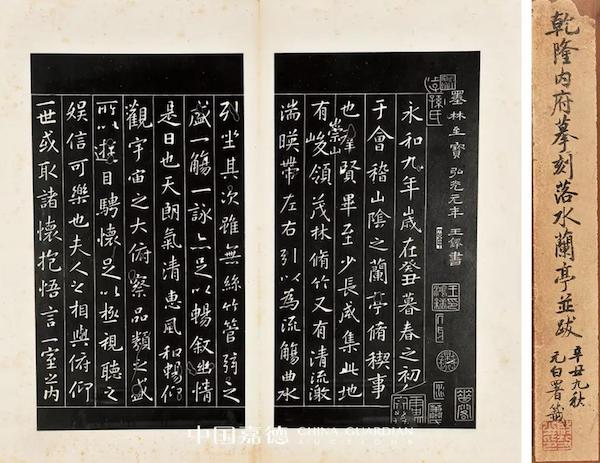 乾隆内府摹刻落水蘭亭並跋
辛丑九秋
元白署籤
墨林至寶 弘光元年 王鐸書
永和九年歲在癸丑暮春之初
于會稽山陰之蘭亭脩稧事
也群賢畢至少長咸集此地
有崇山峻領茂林脩竹又有清流激
湍暎帶左右引以為流觴曲水
列坐其次雖無絲竹管弦之
盛一觴一詠亦足以暢叙幽情
是日也天朗氣清惠風和暢仰
觀宇宙之大俯察品類之盛
所以遊目騁懷足以極視聽之
娛信可樂也夫人之相與俯仰
一世或取諸懷抱悟言一室之內
中国嘉德 CHINA GUARDIAN
AUCTIONS